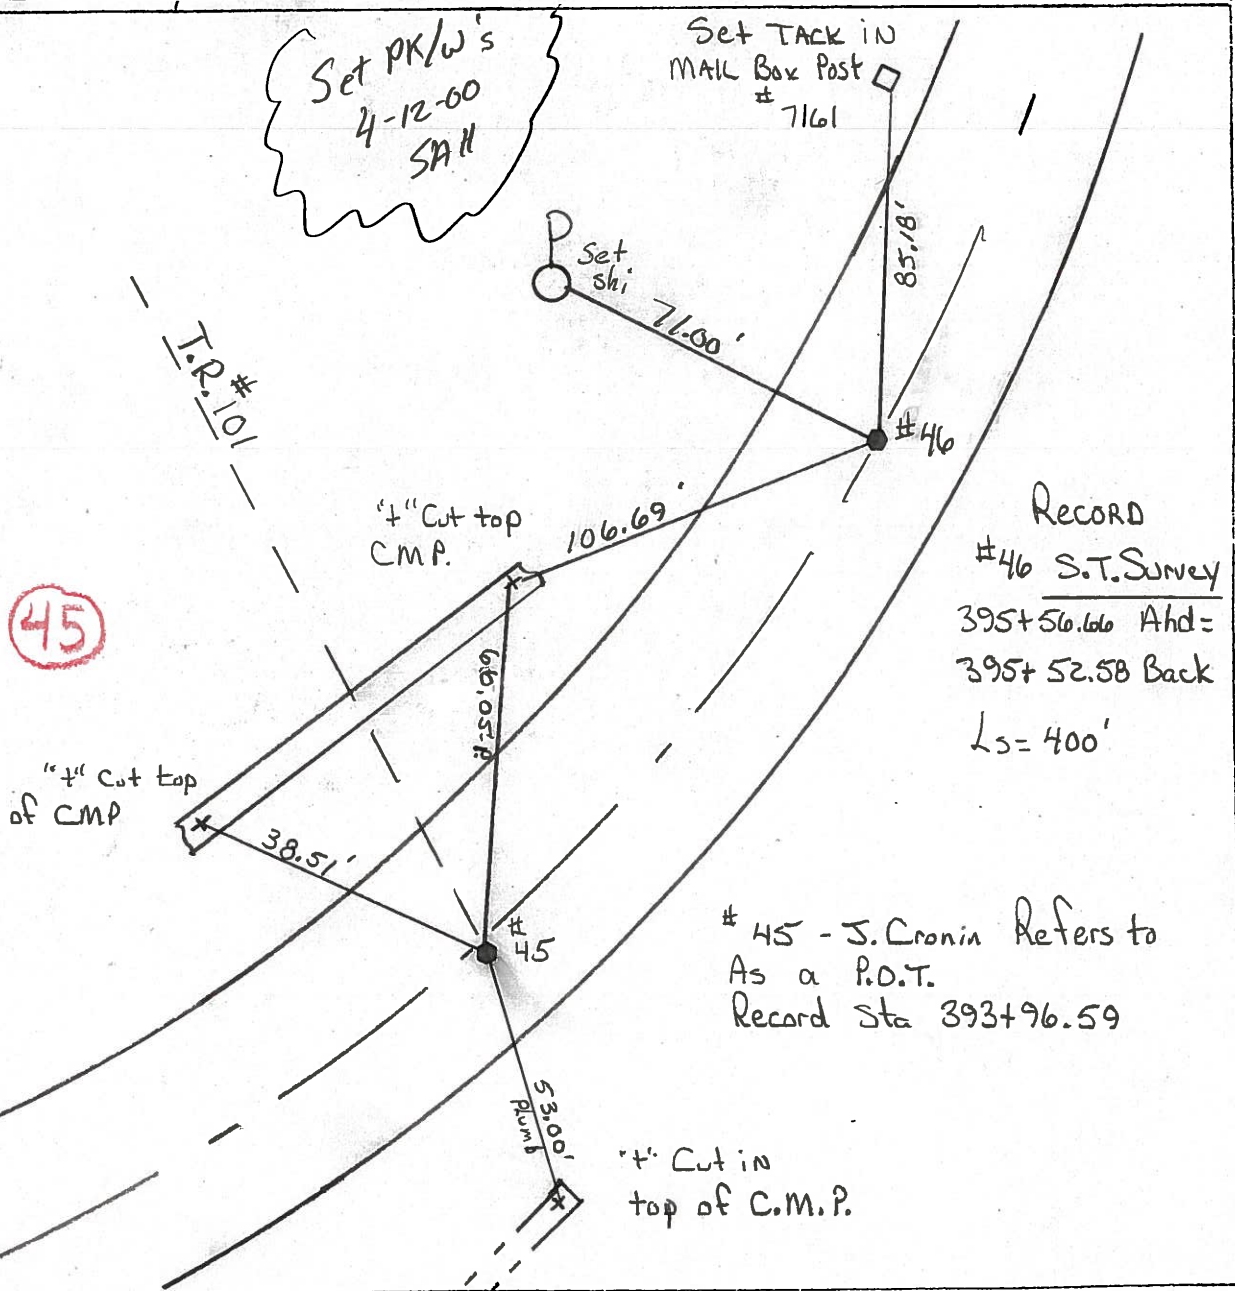 Set PK/W's
4-12-00
SAH
Set TACK iN
MAIL Box Post
# 7161
P
Set
shi
71.00'
85.18'
T.R.# 101
#46
"+" Cut top
CMP.
106.69'
RECORD
#46 S.T. Survey
395+56.66 Ahd=
395+52.58 Back
Ls= 400'
45
"+" Cut top
of CMP
38.51'
# 45
# 45 - J. Cronin Refers to
As a P.O.T.
Record Sta 393+96.59
53.00'
Plumb
"+" Cut iN
top of C.M.P.